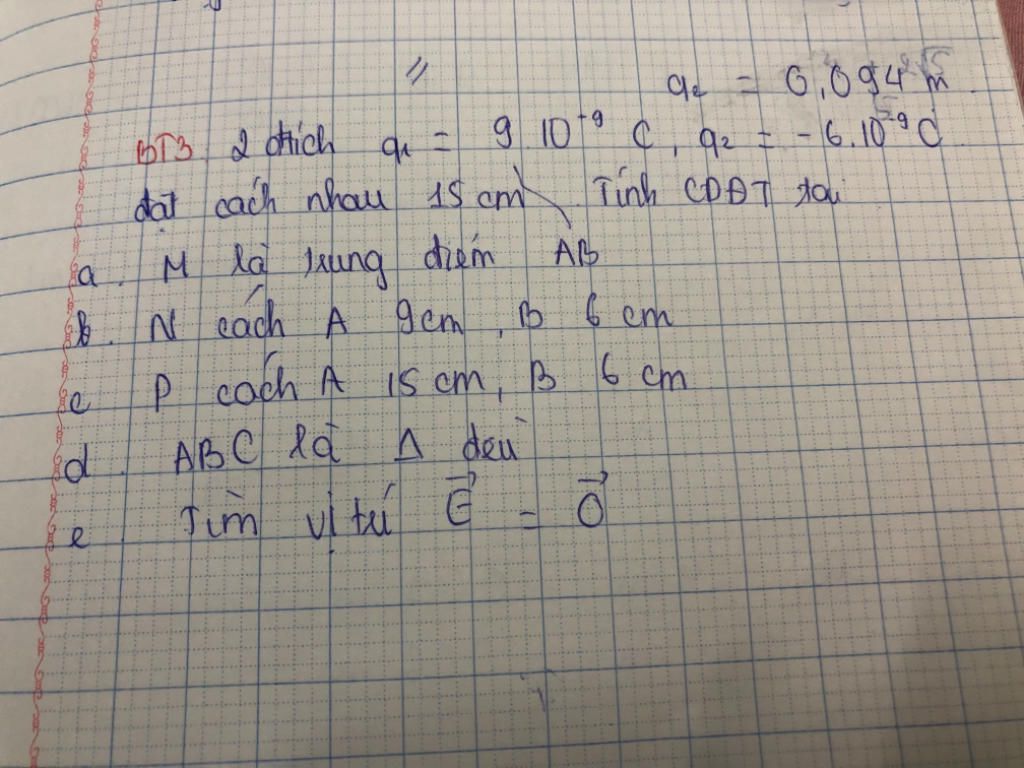 q₂ = 0,094 m
BT3. 2 đtích q₁ = 9.10⁻⁹ C, q₂ = -6.10⁻⁹ C
đặt cách nhau 15 cm. Tính CĐĐT tại
a. M là trung điểm AB
b. N cách A 9cm, B 6 cm
c P cách A 15 cm, B 6 cm
d. ABC là Δ đều
e Tìm vị trí E⃗ = 0⃗